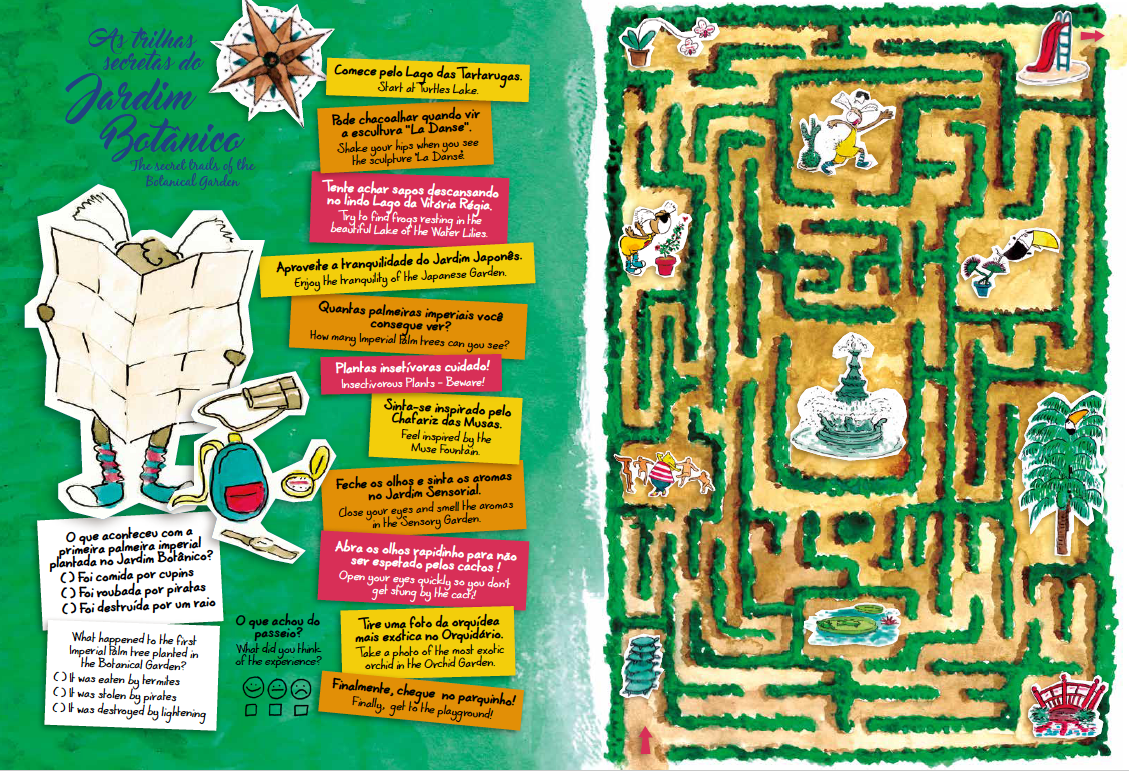 As trilhas
secretas do
Jardim
Botânico
The secret trails of the
Botanical Garden
Comece pelo Lago das Tartarugas.
Start at Turtles Lake.
Pode chacoalhar quando vir
a escultura "La Danse".
Shake your hips when you see
the sculpture "La Danse.
Tente achar sapos descansando
no lindo Lago da Vitória Régia.
Try to find frogs resting in the
beautiful Lake of the Water Lilies.
Aproveite a tranquilidade do Jardim Japonês.
Enjoy the tranquility of the Japanese Garden.
Quantas palmeiras imperiais você
consegue ver?
How many Imperial Palm trees can you see?
Plantas insetívoras cuidado!
Insectivorous Plants - Beware!
Sinta-se inspirado pelo
Chafariz das Musas.
Feel inspired by the
Muse Fountain.
Feche os olhos e sinta os aromas
no Jardim Sensorial.
Close your eyes and smell the aromas
in the Sensory Garden.
Abra os olhos rapidinho para não
ser espetado pelos cactos!
Open your eyes quickly so you don't
get stung by the cacti!
Tire uma foto da orquídea
mais exótica no Orquidário.
Take a photo of the most exotic
orchid in the Orchid Garden.
Finalmente, chegue no parquinho!
Finally, get to the playground!
O que aconteceu com a
primeira palmeira imperial
plantada no Jardim Botânico?
( ) Foi comida por cupins
( ) Foi roubada por piratas
( ) Foi destruída por um raio
What happened to the first
Imperial Palm tree planted in
the Botanical Garden?
( ) It was eaten by termites
( ) It was stolen by pirates
( ) It was destroyed by lightening
O que achou do
passeio?
What did you think
of the experience?